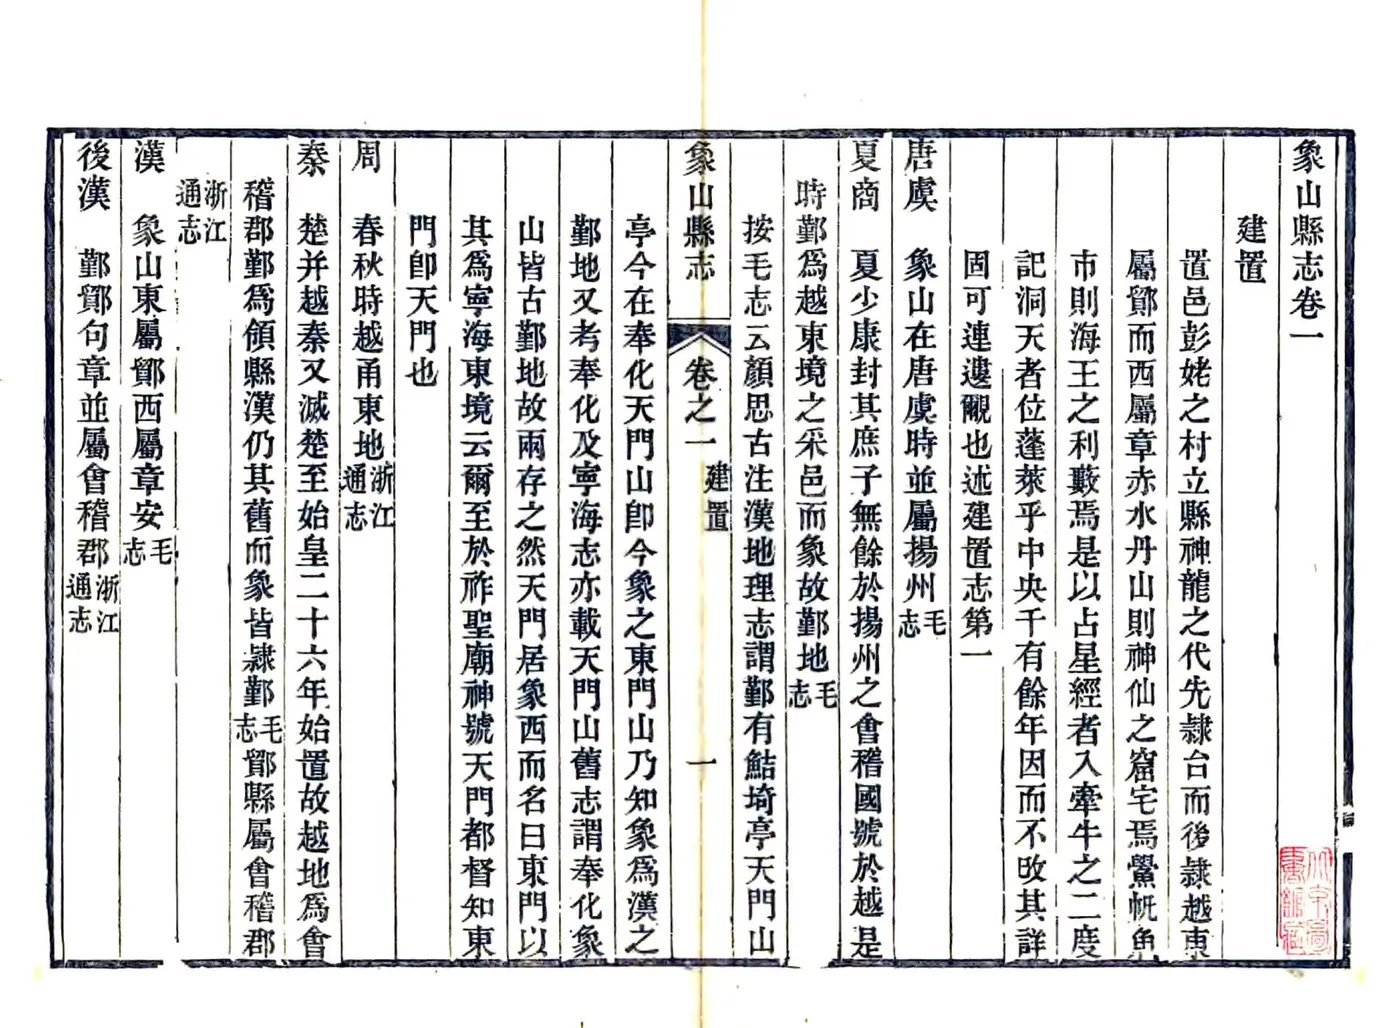 象山縣志卷一
建置
置邑彭姥之村立縣神龍之代先隸台而後隸越東
屬鄮而西屬章赤水丹山則神仙之窟宅焉鱟帆魚
市則海王之利藪焉是以占星經者入牽牛之二度
記洞天者位蓬萊乎中央千有餘年因而不改其詳
固可連遱覼也述建置志第一
唐虞 象山在唐虞時並屬揚州毛志
夏商 夏少康封其庶子無餘於揚州之會稽國號於越是
時鄞為越東境之采邑而象故鄞地毛志
按毛志云顏思古注漢地理志謂鄞有鮚埼亭天門山
象山縣志 卷之一 建置 一
亭今在奉化天門山卽今象之東門山乃知象爲漢之
鄞地又考奉化及寧海志亦載天門山舊志謂奉化象
山皆古鄞地故兩存之然天門居象西而名曰東門以
其爲寧海東境云爾至於祚聖廟神號天門都督知東
門卽天門也
周 春秋時越甬東地浙江通志
秦 楚并越秦又滅楚至始皇二十六年始置故越地爲會
稽郡鄞爲領縣漢仍其舊而象皆隸鄞毛志鄮縣屬會稽郡
浙江通志
漢 象山東屬鄮西屬章安毛志
後漢 鄞鄮句章並屬會稽郡浙江通志